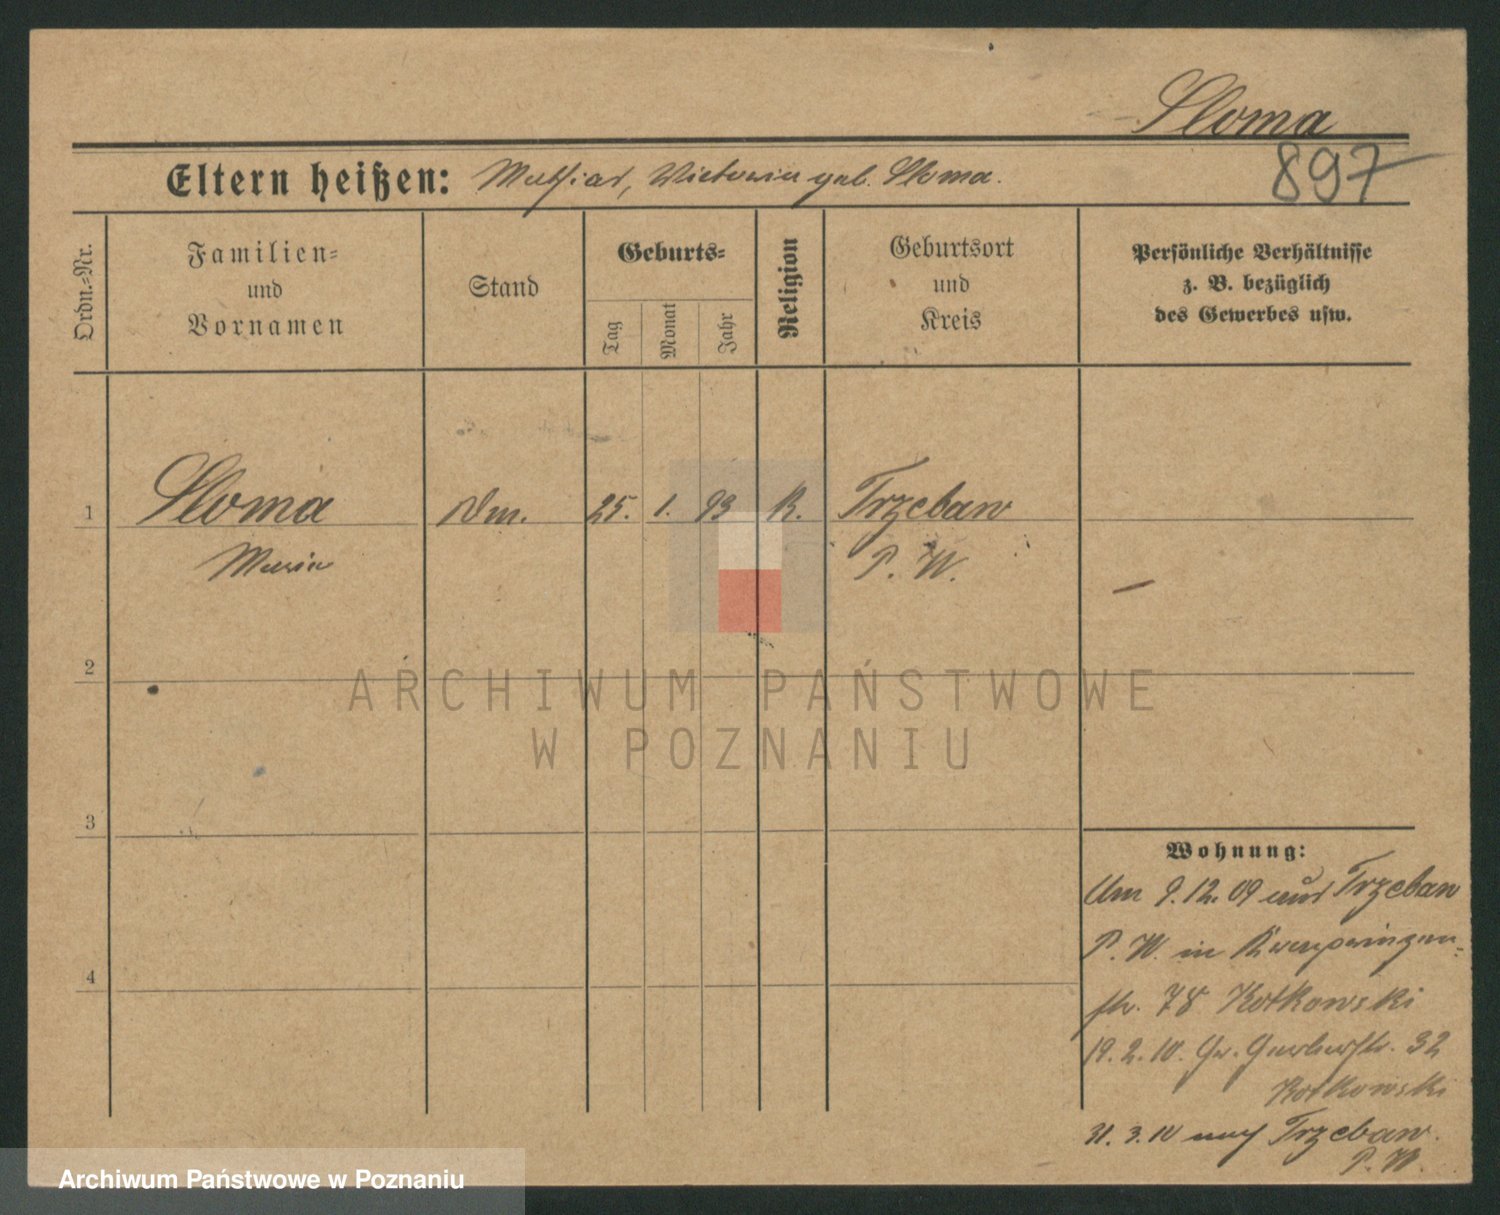 Sloma
897
Eltern heißen: Mathias, Victoria geb. Sloma.
Ordn.-Nr.
Familien-
und
Vornamen
Stand
Geburts-
Tag
Monat
Jahr
Religion
Geburtsort
und
Kreis
Persönliche Verhältnisse
z. B. bezüglich
des Gewerbes usw.
1 Sloma 25. 1. 93 K. Trzebaw
Maria P. W. —
2
3
4
Wohnung:
Am 9.12.09 aus Trzebaw
P. W. in Kronprinzen-
str. 78 Kotkowski
19.2.10. Gr. Gerberstr. 32
Kotkowski
31.3.10 nach Trzebaw.
P. W.
ARCHIWUM PAŃSTWOWE
W POZNANIU
Archiwum Państwowe w Poznaniu